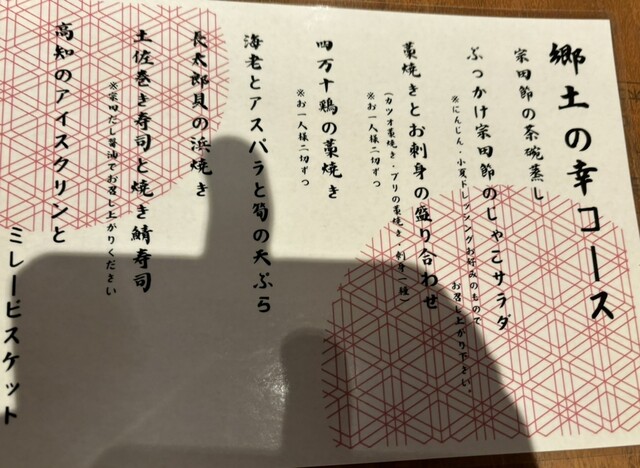 郷土の幸コース
宗田節の茶碗蒸し
ぶっかけ宗田節のじゃこサラダ
※にんじん・小夏ドレッシングお好みのもので
お召し上がり下さい。
藁焼きとお刺身の盛り合わせ
(カツオ藁焼き・ブリの藁焼き・刺身一種)
※お一人様二切ずつ
四万十鶏の藁焼き
※お一人様二切ずつ
海老とアスパラと筍の天ぷら
長太郎貝の浜焼き
土佐巻き寿司と焼き鯖寿司
※宗田だし醤油でお召し上がりください
高知のアイスクリンと
ミレービスケット